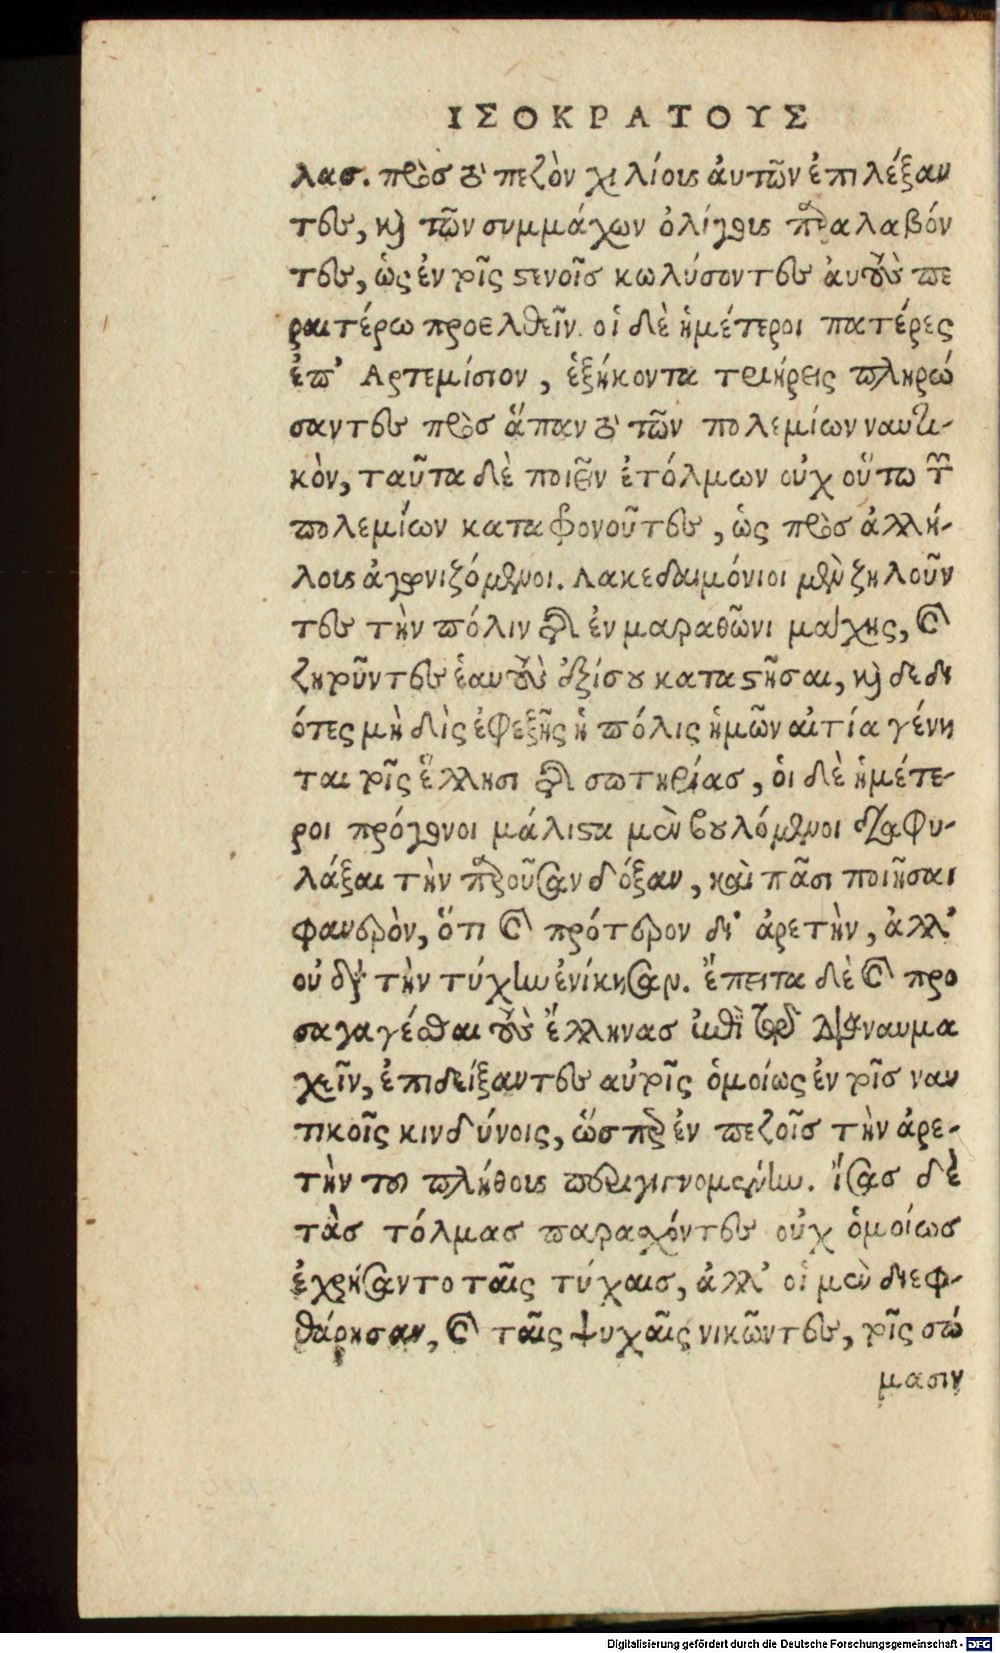 ΙΣΟΚΡΑΤΟΥΣ
λας. πρὸς τὸ πεζὸν χιλίους ἀυτῶν ἐπιλέξαν
τες, καὶ τῶν συμμάχων ὀλίγους παραλαβόν
τες, ὡς ἐν τοῖς στενοῖς κωλύσοντες ἀυτοὺς πε
ραιτέρω προελθεῖν. οἱ δὲ ἡμέτεροι πατέρες
ἐπ' Αρτεμίσιον, ἑξήκοντα τριήρεις πληρώ
σαντες πρὸς ἅπαν τὸ τῶν πολεμίων ναυτι-
κὸν, ταῦτα δὲ ποιεῖν ἐτόλμων οὐχ οὕτω τῶν
πολεμίων καταφρονοῦντες, ὡς πρὸς ἀλλή-
λους ἀγωνιζόμενοι. Λακεδαιμόνιοι μὲν ζηλοῦν
τες τὴν πόλιν τῆς ἐν μαραθῶνι μάχης, καὶ
ζητοῦντες ἑαυτοὺς ἐξίσου καταστῆσαι, καὶ δεδι
ότες μὴ δὶς ἐφεξῆς ἡ πόλις ἡμῶν αἰτία γένη
ται τοῖς ἕλλησι τῆς σωτηρίας, ὁι δὲ ἡμέτε-
ροι πρόγονοι μάλιστα μὲν βουλόμενοι διαφυ-
λάξαι τὴν παροῦσαν δόξαν, καὶ πᾶσι ποιῆσαι
φανερὸν, ὅτι καὶ πρότερον δι' ἀρετὴν, ἀλλ'
οὐ διὰ τὴν τύχην ἐνίκησαν. ἔπειτα δὲ καὶ προ
σαγαγέσθαι τοὺς ἕλληνας ἐπὶ τὸ διαναυμα
χεῖν, ἐπιδείξαντες αὐτοῖς ὁμοίως ἐν τοῖς ναυ
τικοῖς κινδύνοις, ὥσπερ ἐν πεζοῖς τὴν ἀρε-
τὴν τοῦ πλήθους περιγιγνομένην. ἴσας δὲ
τὰς τόλμας παρασχόντες οὐχ ὁμοίως
ἐχρήσαντο ταῖς τύχαις, ἀλλ' οἱ μὲν διεφ-
θάρησαν, καὶ ταῖς ψυχαῖς νικῶντες, τοῖς σώ
μασιν
Digitalisierung gefördert durch die Deutsche Forschungsgemeinschaft - DFG